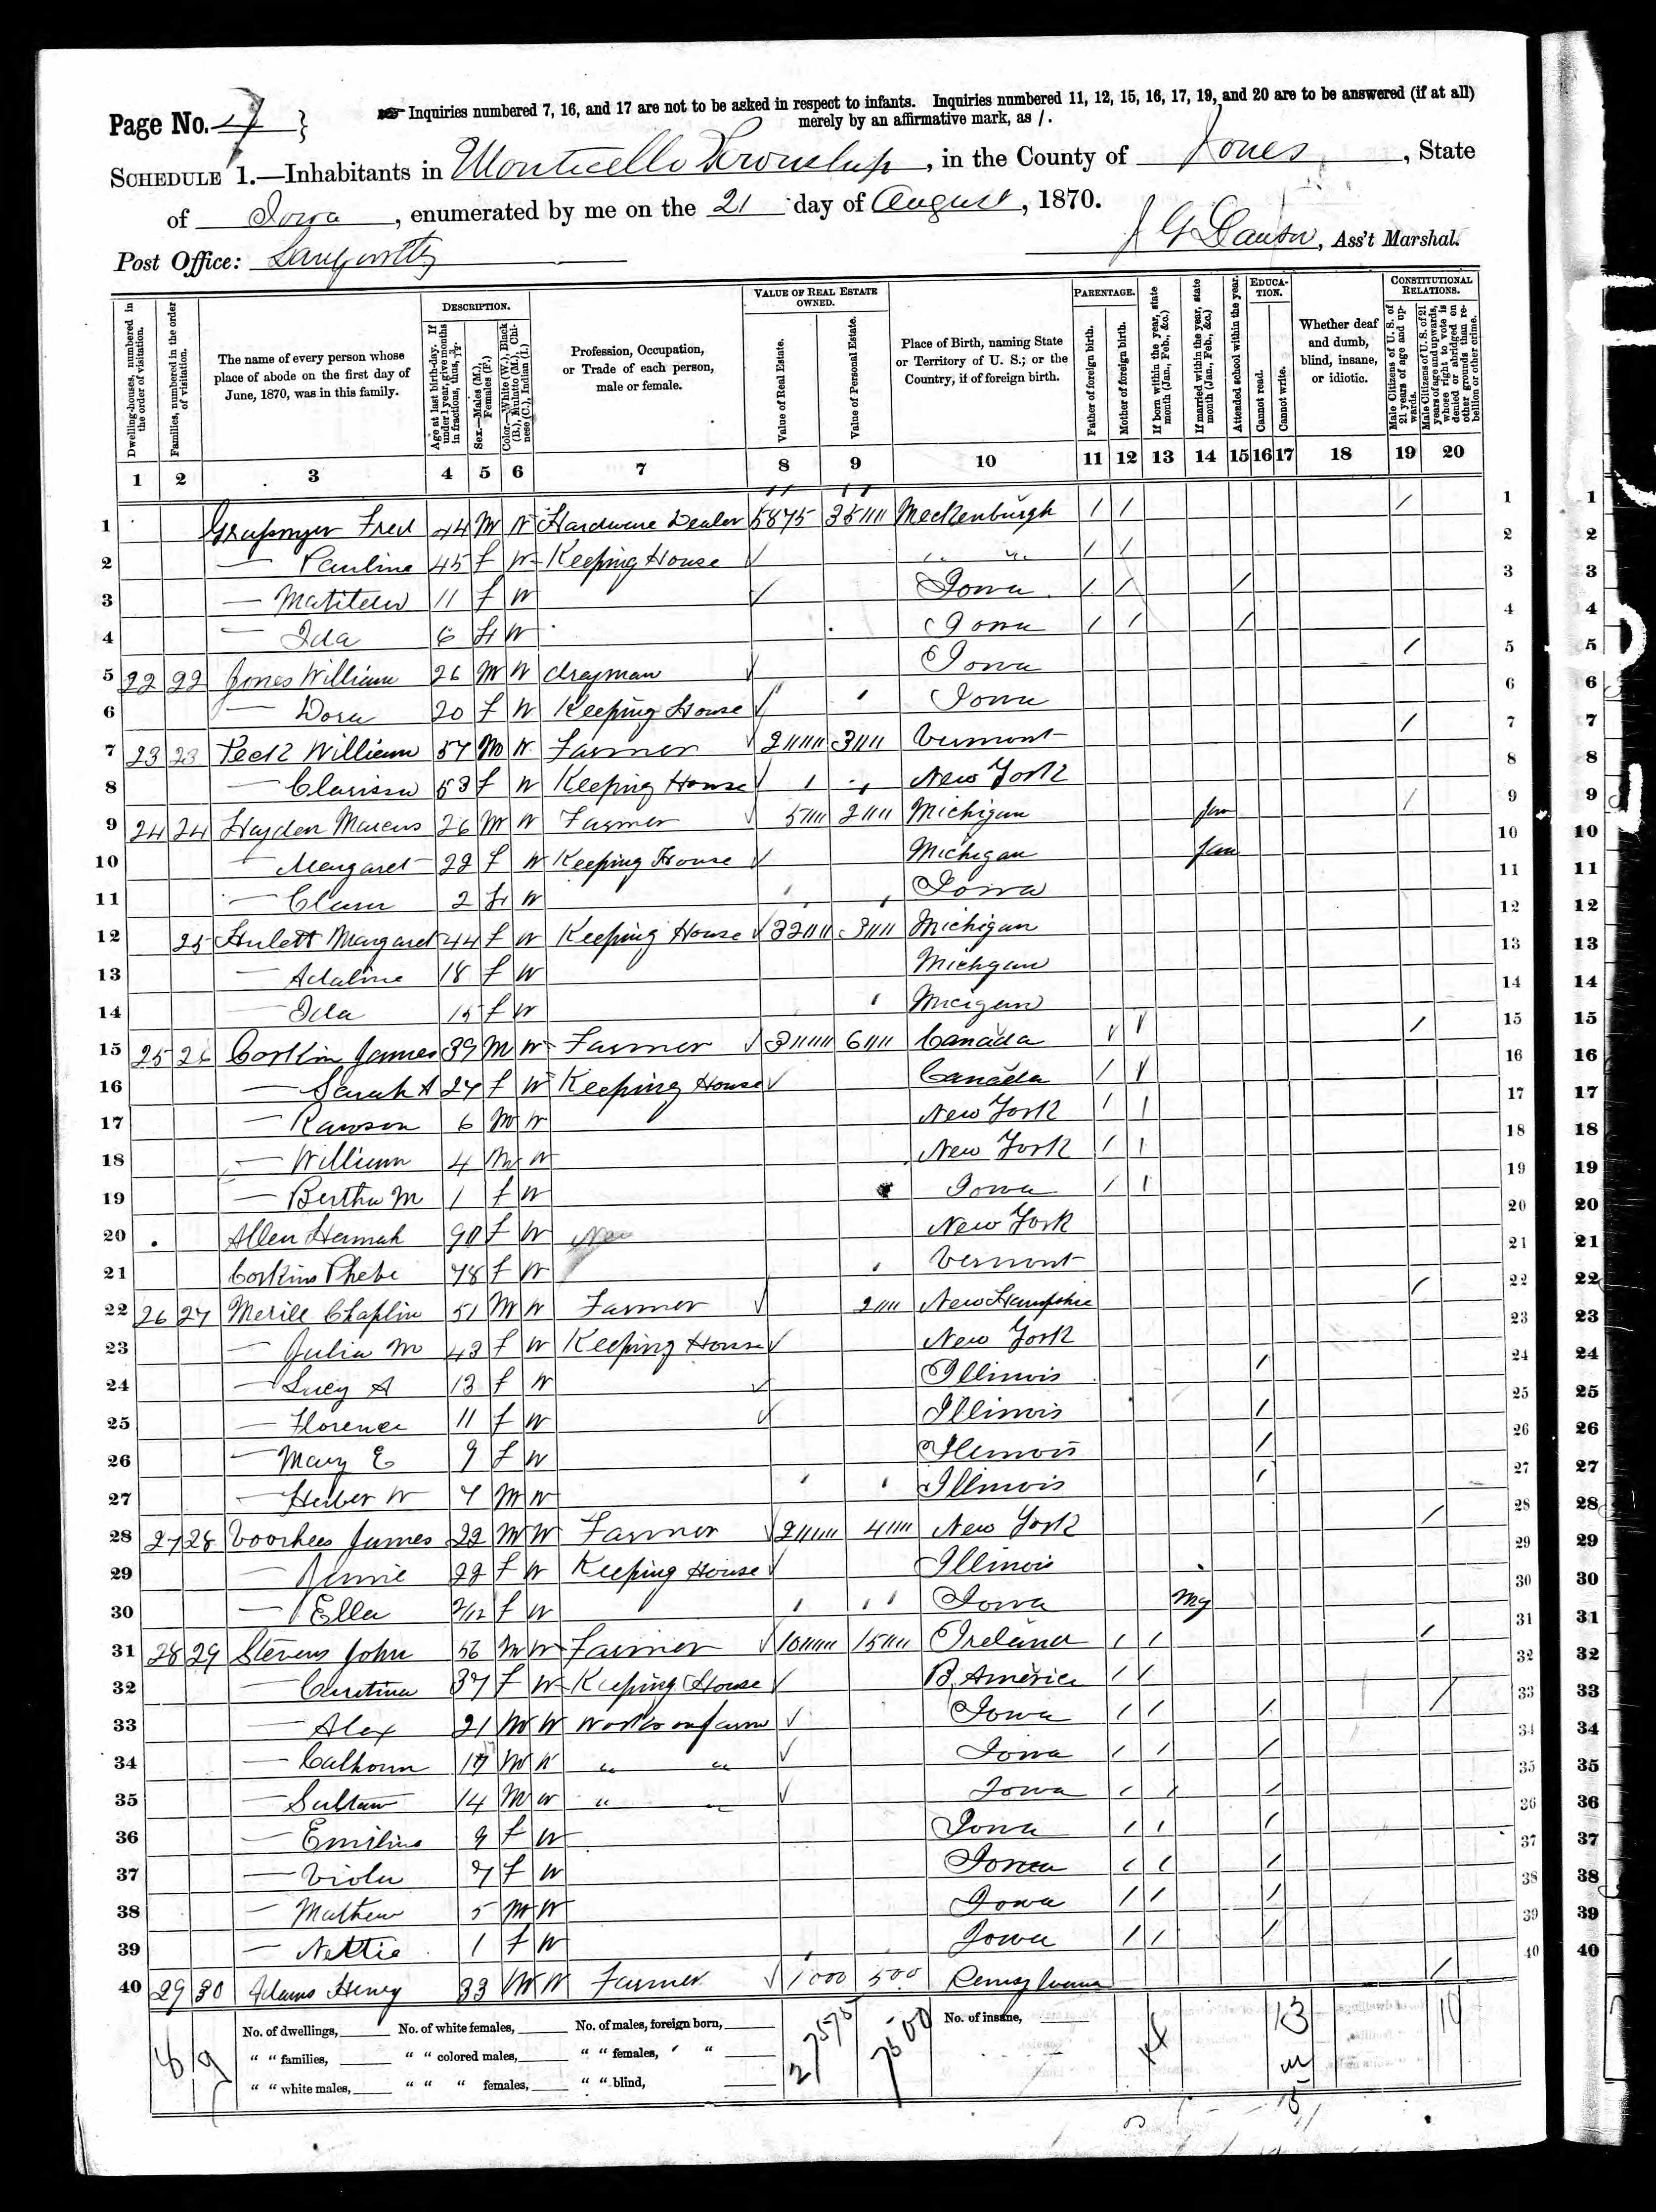 Page No. 4 }
Inquiries numbered 7, 16, and 17 are not to be asked in respect to infants. Inquiries numbered 11, 12, 15, 16, 17, 19, and 20 are to be answered (if at all)
merely by an affirmative mark, as /.
SCHEDULE 1.—Inhabitants in Monticello Township, in the County of Jones, State
of Iowa, enumerated by me on the 21 day of August, 1870.
Post Office: Langworthy
J G, Ass't Marshal.
Dwelling-houses, numbered in the order of visitation.
Families, numbered in the order of visitation.
The name of every person whose place of abode on the first day of June, 1870, was in this family.
DESCRIPTION.
Age at last birth-day. If under 1 year, give months in fractions, thus, 3/12.
Sex.—Males (M.), Females (F.)
Color.—White (W.), Black (B.), Mulatto (M.), Chinese (C.), Indian (I.)
Profession, Occupation, or Trade of each person, male or female.
VALUE OF REAL ESTATE OWNED.
Value of Real Estate.
Value of Personal Estate.
Place of Birth, naming State or Territory of U. S.; or the Country, if of foreign birth.
PARENTAGE.
Father of foreign birth.
Mother of foreign birth.
If born within the year, state month (Jan., Feb., &c.)
If married within the year, state month (Jan., Feb., &c.)
Attended school within the year.
EDUCATION.
Cannot read.
Cannot write.
Whether deaf and dumb, blind, insane, or idiotic.
CONSTITUTIONAL RELATIONS.
Male Citizens of U. S. of 21 years of age and upwards.
Male Citizens of U. S. of 21 years of age and upwards, whose right to vote is denied or abridged on other grounds than rebellion or other crime.
1 2 3 4 5 6 7 8 9 10 11 12 13 14 15 16 17 18 19 20
1 Fred 44 M W Hardware Dealer 5875 35 Mecklenburgh / / / 1
2 — Pauline 45 f W Keeping House " " / / 2
3 — Matilda 11 f W Iowa / / / 3
4 — Ida 6 f W Iowa / / / 4
5 22 22 Jones William 26 M W drayman Iowa / 5
6 — Dora 20 f W Keeping House Iowa 6
7 23 23 Peck William 57 M W Farmer 2 3 Vermont / 7
8 — Clarissa 53 f W Keeping House New York 8
9 24 24 Hayden Marcus 26 M W Farmer 5 2 Michigan Jan / 9
10 — Margaret 22 f W Keeping House Michigan Jan 10
11 — Clara 2 f W Iowa 11
12 25 Hulett Margaret 44 f W Keeping House 32 3 Michigan 12
13 — Adaline 18 f W Michgan 13
14 — Ida 15 f W Micigan 14
15 25 26 Corkin James 39 M W Farmer 3 6 Canada / / / 15
16 — Sarah A 27 f W Keeping House Canada / / 16
17 — Rawson 6 M W New York / / 17
18 — William 4 M W New York / / 18
19 — Bertha M 1 f W Iowa / / 19
20 Allen Hannah 90 f W New York 20
21 Corkins Phebe 78 f W Vermont 21
22 26 27 Merill Chaplin 51 M W Farmer 2 New Hampshire / 22
23 — Julia M 43 f W Keeping House New York 23
24 — Lucy A 13 f W Illinois / 24
25 — Florence 11 f W Illinois / 25
26 — Mary E 9 f W Illinois / 26
27 — Heber W 7 M W Illinois / 27
28 27 28 Voorhees James 22 M W Farmer 2 4 New York / 28
29 — Jennie 22 f W Keeping House Illinois 29
30 — Ella 2/12 f W Iowa My 30
31 28 29 Stevens John 56 M W Farmer 10 15 Ireland / / / 31
32 — 37 f W Keeping House B. America / / 32
33 — Alex 21 M W Works on farm Iowa / / / / 33
34 — Calhoun 17 M W " " Iowa / / / 34
35 — Sultan 14 M W " " Iowa / / / 35
36 — Emiline 9 f W Iowa / / / 36
37 — Viola 7 f W Iowa / / / 37
38 — Mathew 5 M W Iowa / / / 38
39 — Nettie 1 f W Iowa / / / 39
40 29 30 Adams Henry 33 M W Farmer 1000 500 / 40
No. of dwellings, No. of white females, No. of males, foreign born, No. of insane,
" " families, " " colored males, " " females, " "
" " white males, " " " females, " " blind,
8 9 27575 7500 14 13 10
1
2
3
4
5
6
7
8
9
10
11
12
13
14
15
16
17
18
19
20
21
22
23
24
25
26
27
28
29
30
31
32
33
34
35
36
37
38
39
40